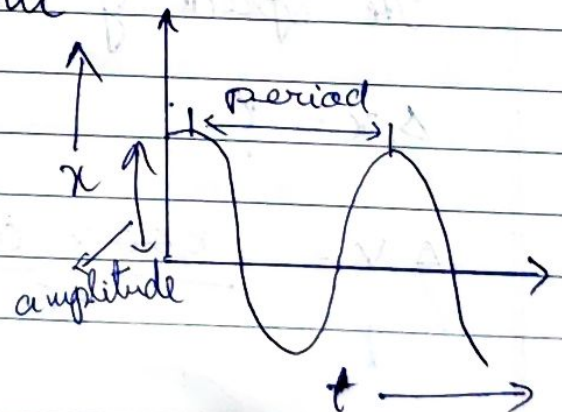 period
x
amplitude
t